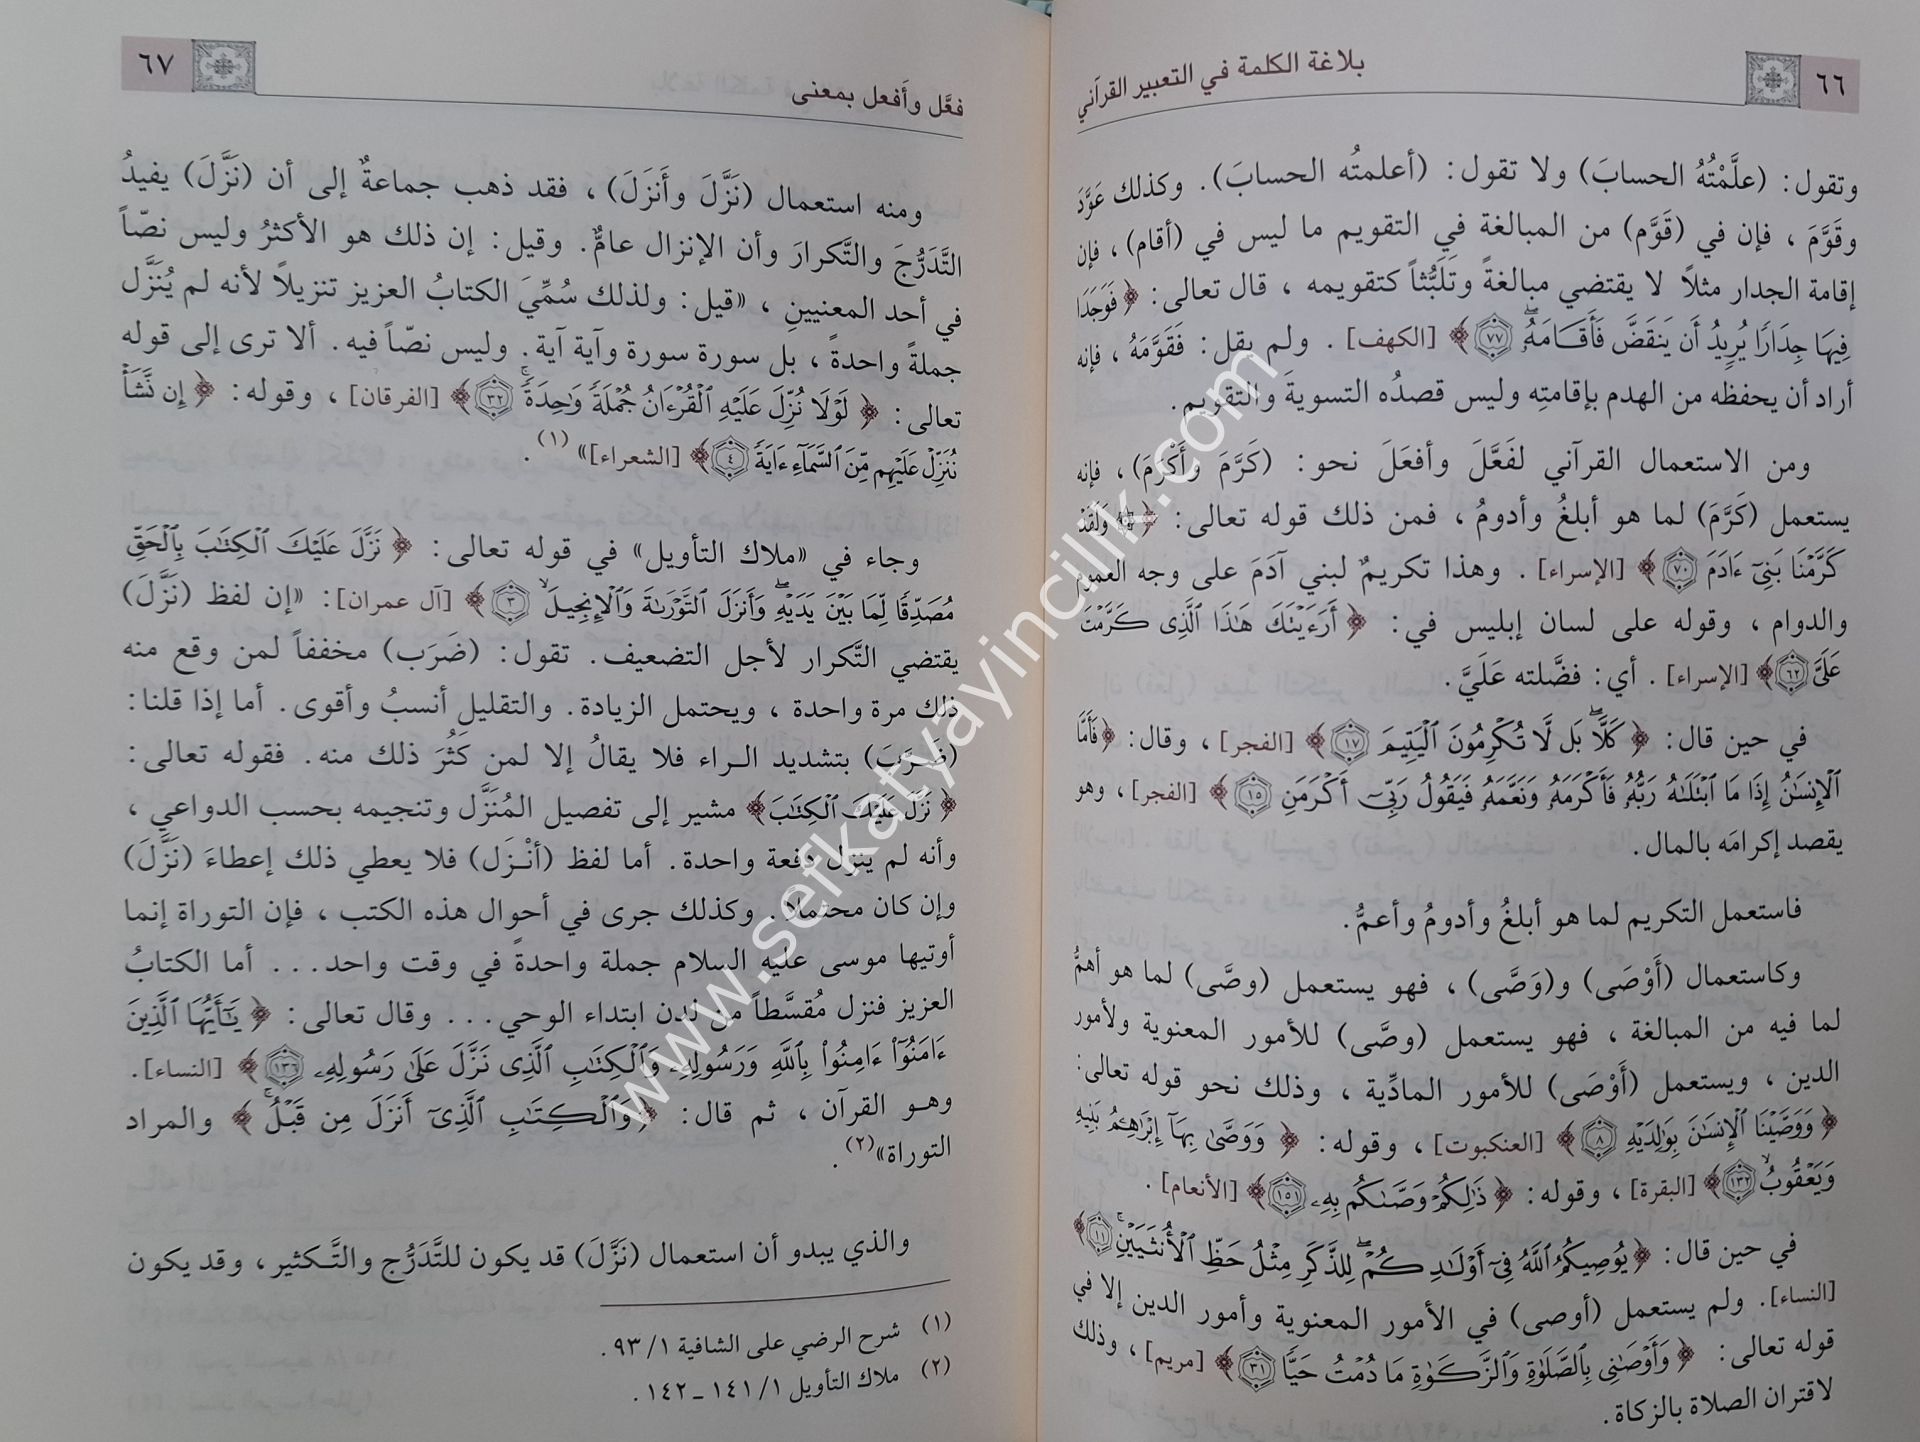 ٦٦
بلاغة الكلمة في التعبير القرآني
وتقول: (علَّمْتُهُ الحسابَ) ولا تقول: (أعلمتُه الحسابَ). وكذلك عَوَّدَ
وقَوَّمَ ، فإن في (قَوَّم) من المبالغة في التقويم ما ليس في (أقام) ، فإن
إقامة الجدار مثلًا لا يقتضي مبالغةً وتَلَبُّثاً كتقويمه ، قال تعالى: ﴿فَوَجَدَا
فِيهَا جِدَارًا يُرِيدُ أَن يَنقَضَّ فَأَقَامَهُۥۖ ۝٧٧﴾ [الكهف] . ولم يقل: فَقَوَّمَهُ ، فإنه
أراد أن يحفظه من الهدم بإقامتِه وليس قصدُه التسويةَ والتقويم.
ومن الاستعمال القرآني لفَعَّلَ وأفعَلَ نحو: (كَرَّمَ وأَكْرَمَ) ، فإنه
يستعمل (كَرَّمَ) لما هو أبلغُ وأدومُ ، فمن ذلك قوله تعالى: ﴿۞ وَلَقَدْ
كَرَّمْنَا بَنِىٓ ءَادَمَ ۝٧٠﴾ [الإسراء] . وهذا تكريمٌ لبني آدَمَ على وجه العموم
والدوام ، وقوله على لسان إبليس في: ﴿أَرَءَيْتَكَ هَٰذَا ٱلَّذِى كَرَّمْتَ
عَلَىَّ ۝٦٢﴾ [الإسراء] . أي: فضَّلته عَلَيَّ.
في حين قال: ﴿كَلَّاۖ بَل لَّا تُكْرِمُونَ ٱلْيَتِيمَ ۝١٧﴾ [الفجر] ، وقال: ﴿فَأَمَّا
ٱلْإِنسَٰنُ إِذَا مَا ٱبْتَلَىٰهُ رَبُّهُۥ فَأَكْرَمَهُۥ وَنَعَّمَهُۥ فَيَقُولُ رَبِّىٓ أَكْرَمَنِ ۝١٥﴾ [الفجر] ، وهو
يقصد إكرامَه بالمال.
فاستعمل التكريم لما هو أبلغُ وأدومُ وأعمُّ.
وكاستعمال (أَوْصَى) و(وَصَّى) ، فهو يستعمل (وصَّى) لما هو أهمُّ
لما فيه من المبالغة ، فهو يستعمل (وصَّى) للأمور المعنوية ولأمور
الدين ، ويستعمل (أَوْصَى) للأمور المادِّية ، وذلك نحو قوله تعالى:
﴿وَوَصَّيْنَا ٱلْإِنسَٰنَ بِوَٰلِدَيْهِ ۝٨﴾ [العنكبوت] ، وقوله: ﴿وَوَصَّىٰ بِهَآ إِبْرَٰهِۦمُ بَنِيهِ
وَيَعْقُوبُۙ ۝١٣٢﴾ [البقرة] ، وقوله: ﴿ذَٰلِكُمْ وَصَّىٰكُم بِهِۦ ۝١٥١﴾ [الأنعام] .
في حين قال: ﴿يُوصِيكُمُ ٱللَّهُ فِىٓ أَوْلَٰدِكُمْۖ لِلذَّكَرِ مِثْلُ حَظِّ ٱلْأُنثَيَيْنِۚ ۝١١﴾
[النساء]. ولم يستعمل (أوصى) في الأمور المعنوية وأمور الدين إلا في
قوله تعالى: ﴿وَأَوْصَٰنِى بِٱلصَّلَوٰةِ وَٱلزَّكَوٰةِ مَا دُمْتُ حَيًّا ۝٣١﴾ [مريم] ، وذلك
لاقتران الصلاة بالزكاة.
فعَّل وأفعل بمعنى
٦٧
ومنه استعمال (نَزَّلَ وأَنزَلَ) ، فقد ذهب جماعةٌ إلى أن (نَزَّلَ) يفيدُ
التَّدَرُّجَ والتَّكرارَ وأن الإنزال عامٌّ. وقيل: إن ذلك هو الأكثرُ وليس نصّاً
في أحد المعنيينِ ، «قيل: ولذلك سُمِّيَ الكتابُ العزيز تنزيلاً لأنه لم يُنَزَّل
جملةً واحدةً ، بل سورة سورة وآية آية. وليس نصّاً فيه. ألا ترى إلى قوله
تعالى: ﴿لَوْلَا نُزِّلَ عَلَيْهِ ٱلْقُرْءَانُ جُمْلَةً وَٰحِدَةًۚ ۝٣٢﴾ [الفرقان] ، وقوله: ﴿إِن نَّشَأْ
نُنَزِّلْ عَلَيْهِم مِّنَ ٱلسَّمَآءِ ءَايَةً ۝٤﴾ [الشعراء]» (١) .
وجاء في «ملاك التأويل» في قوله تعالى: ﴿نَزَّلَ عَلَيْكَ ٱلْكِتَٰبَ بِٱلْحَقِّ
مُصَدِّقًا لِّمَا بَيْنَ يَدَيْهِۖ وَأَنزَلَ ٱلتَّوْرَىٰةَ وَٱلْإِنجِيلَۙ ۝٣﴾ [آل عمران]: «إن لفظ (نَزَّلَ)
يقتضي التَّكرار لأجل التضعيف. تقول: (ضَرَب) مخففاً لمن وقع منه
ذلك مرة واحدة ، ويحتمل الزيادة. والتقليل أنسبُ وأقوى. أما إذا قلنا:
(ضرَّبَ) بتشديد الراء فلا يقالُ إلا لمن كَثُرَ ذلك منه. فقوله تعالى:
﴿نَزَّلَ عَلَيْكَ ٱلْكِتَٰبَ﴾ مشير إلى تفصيل المُنَزَّل وتنجيمه بحسب الدواعي ،
وأنه لم ينزل دفعة واحدة. أما لفظ (أنْزَل) فلا يعطي ذلك إعطاءَ (نَزَّلَ)
وإن كان محتملا. وكذلك جرى في أحوال هذه الكتب ، فإن التوراة إنما
أوتيها موسى عليه السلام جملة واحدةً في وقت واحد... أما الكتابُ
العزيز فنزل مُقسَّطاً من لدن ابتداء الوحي... وقال تعالى: ﴿يَٰٓأَيُّهَا ٱلَّذِينَ
ءَامَنُوٓا۟ ءَامِنُوا۟ بِٱللَّهِ وَرَسُولِهِۦ وَٱلْكِتَٰبِ ٱلَّذِى نَزَّلَ عَلَىٰ رَسُولِهِۦ ۝١٣٦﴾ [النساء].
وهو القرآن ، ثم قال: ﴿وَٱلْكِتَٰبِ ٱلَّذِىٓ أَنزَلَ مِن قَبْلُۚ﴾ والمراد
التوراة» (٢) .
والذي يبدو أن استعمال (نَزَّلَ) قد يكون للتَّدَرُّج والتَّكثير ، وقد يكون
(١) شرح الرضي على الشافية ١/ ٩٣ .
(٢) ملاك التأويل ١/ ١٤١ ـ ١٤٢ .
www.sefkatyayincilik.com